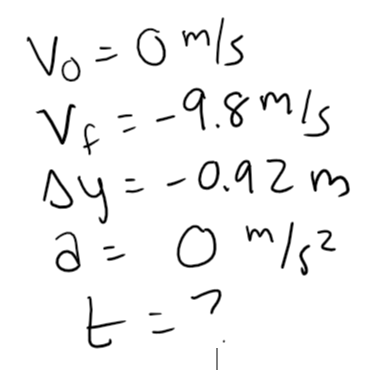 V₀ = 0 m/s
V_f = -9.8 m/s
Δy = -0.92 m
a = 0 m/s²
t = ?